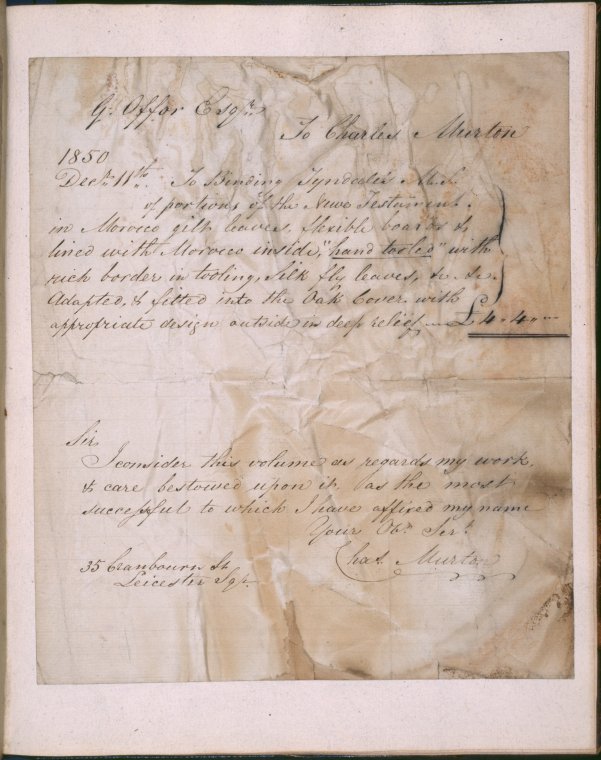 G. Offor Esqre
To Charles Murton
1850
Decr. 11th. To Binding Tyndale's M.S.
of portions of the New Testament.
in Morocco gilt leaves, flexible boards &
lined with Morocco inside, "hand tooled" with
rich border in tooling, silk fly leaves, &c. &c.
Adapted, & fitted into the Oak Cover with
appropriate design outside in deep relief — £4.4.—
Sir
I consider this volume as regards my work,
& care bestowed upon it, as the most
successful to which I have affixed my name
Your Obt. Sert.
Chas. Murton
35 Cranbourn St.
Leicester Sqr.